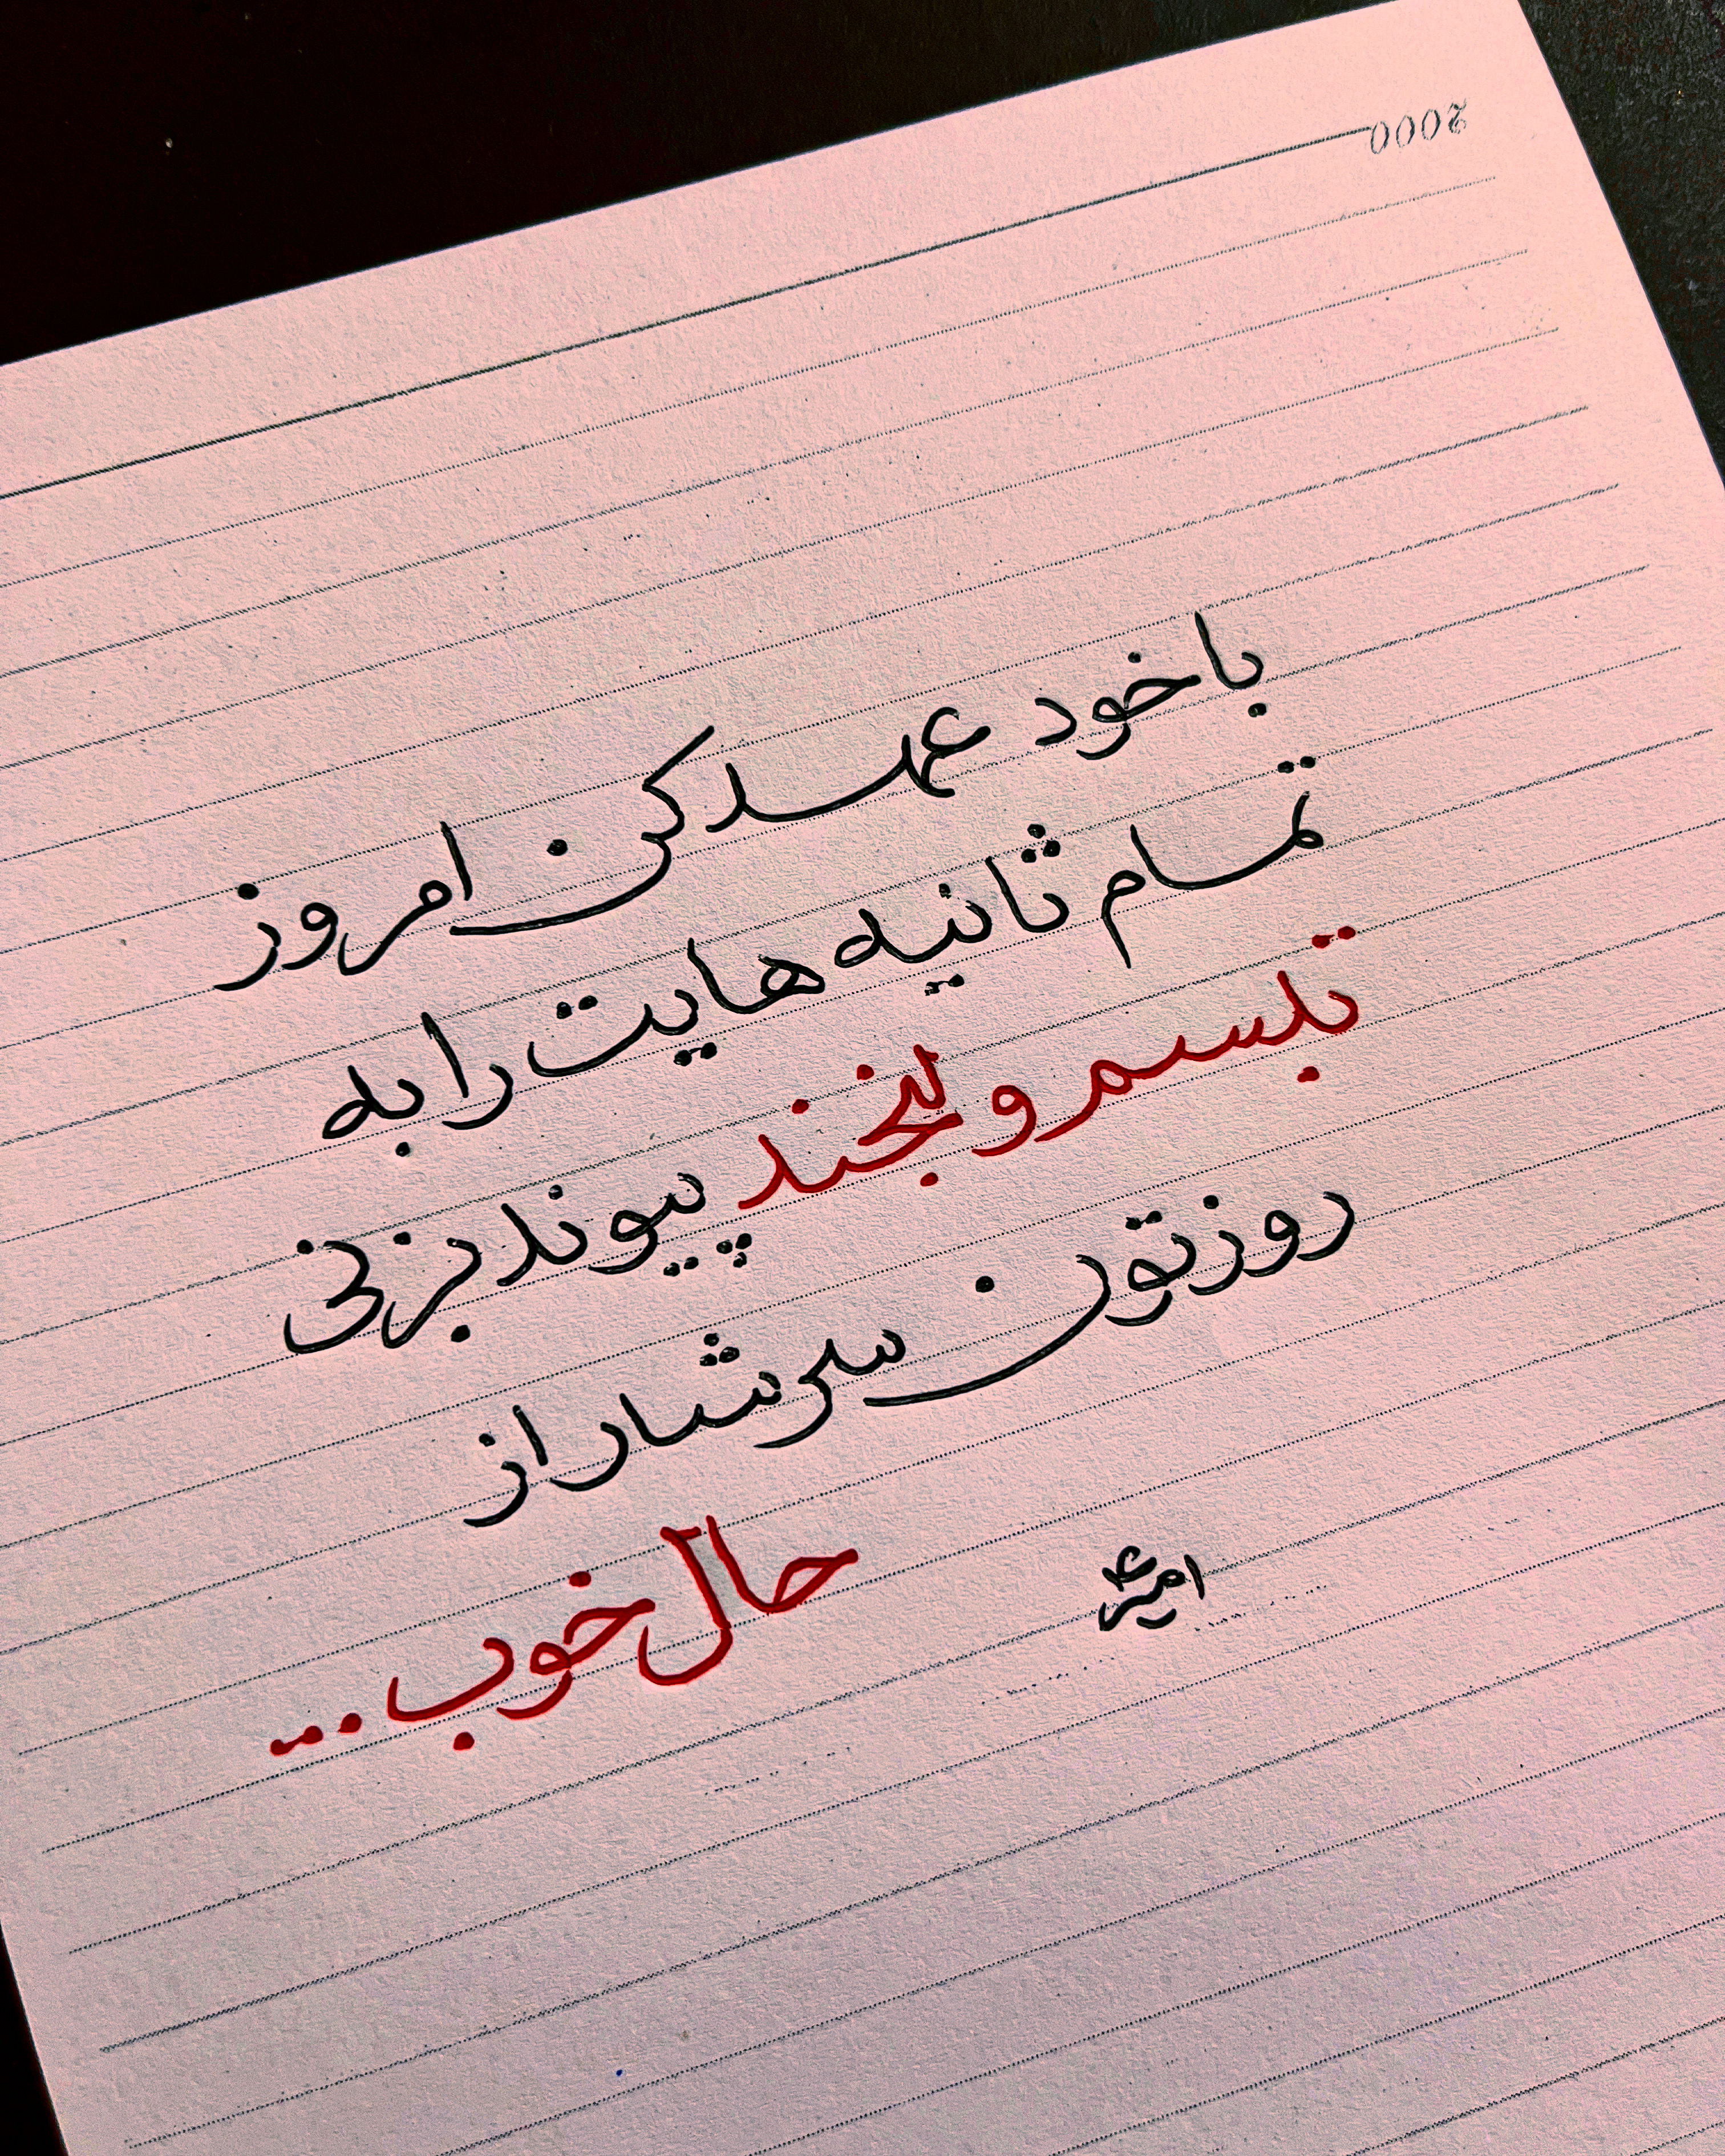 2000
با خود عهد کن امروز
تمام ثانیه هایت را به
تبسم و لبخند پیوند بزنی
روزتون سرشار از
حال خوب...